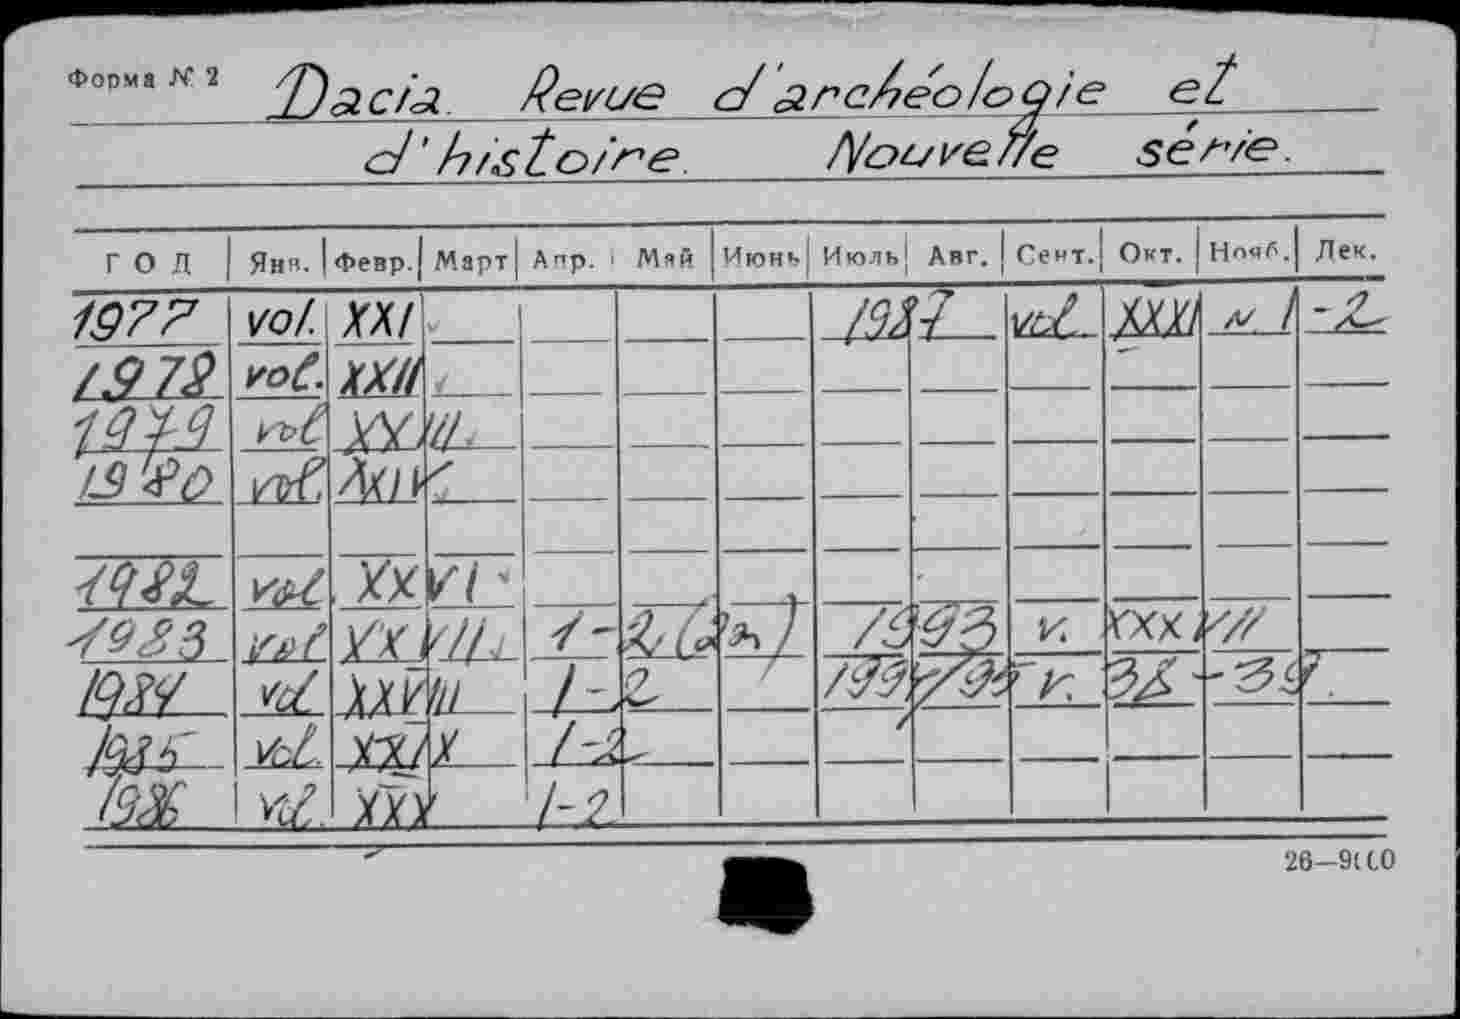 Форма № 2
Dacia. Revue d'archéologie et
d'histoire. Nouvelle série.
ГОД Янв. Февр. Март Апр. Май Июнь Июль Авг. Сент. Окт. Нояб. Дек.
1977 vol. XXI 1987 vol. XXXI N 1-2
1978 vol. XXII
1979 vol XXIII
1980 vol. XXIV
1982 vol XXVI
1983 vol XXVII 1-2 1993 v. XXXVII
1984 vol XXVIII 1-2 1994/95 v. 38-39.
1985 vol. XXIX 1-2
1986 vol. XXX 1-2
26—9100